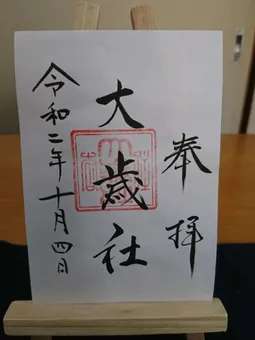 奉拝
大歳社
令和二年十月四日